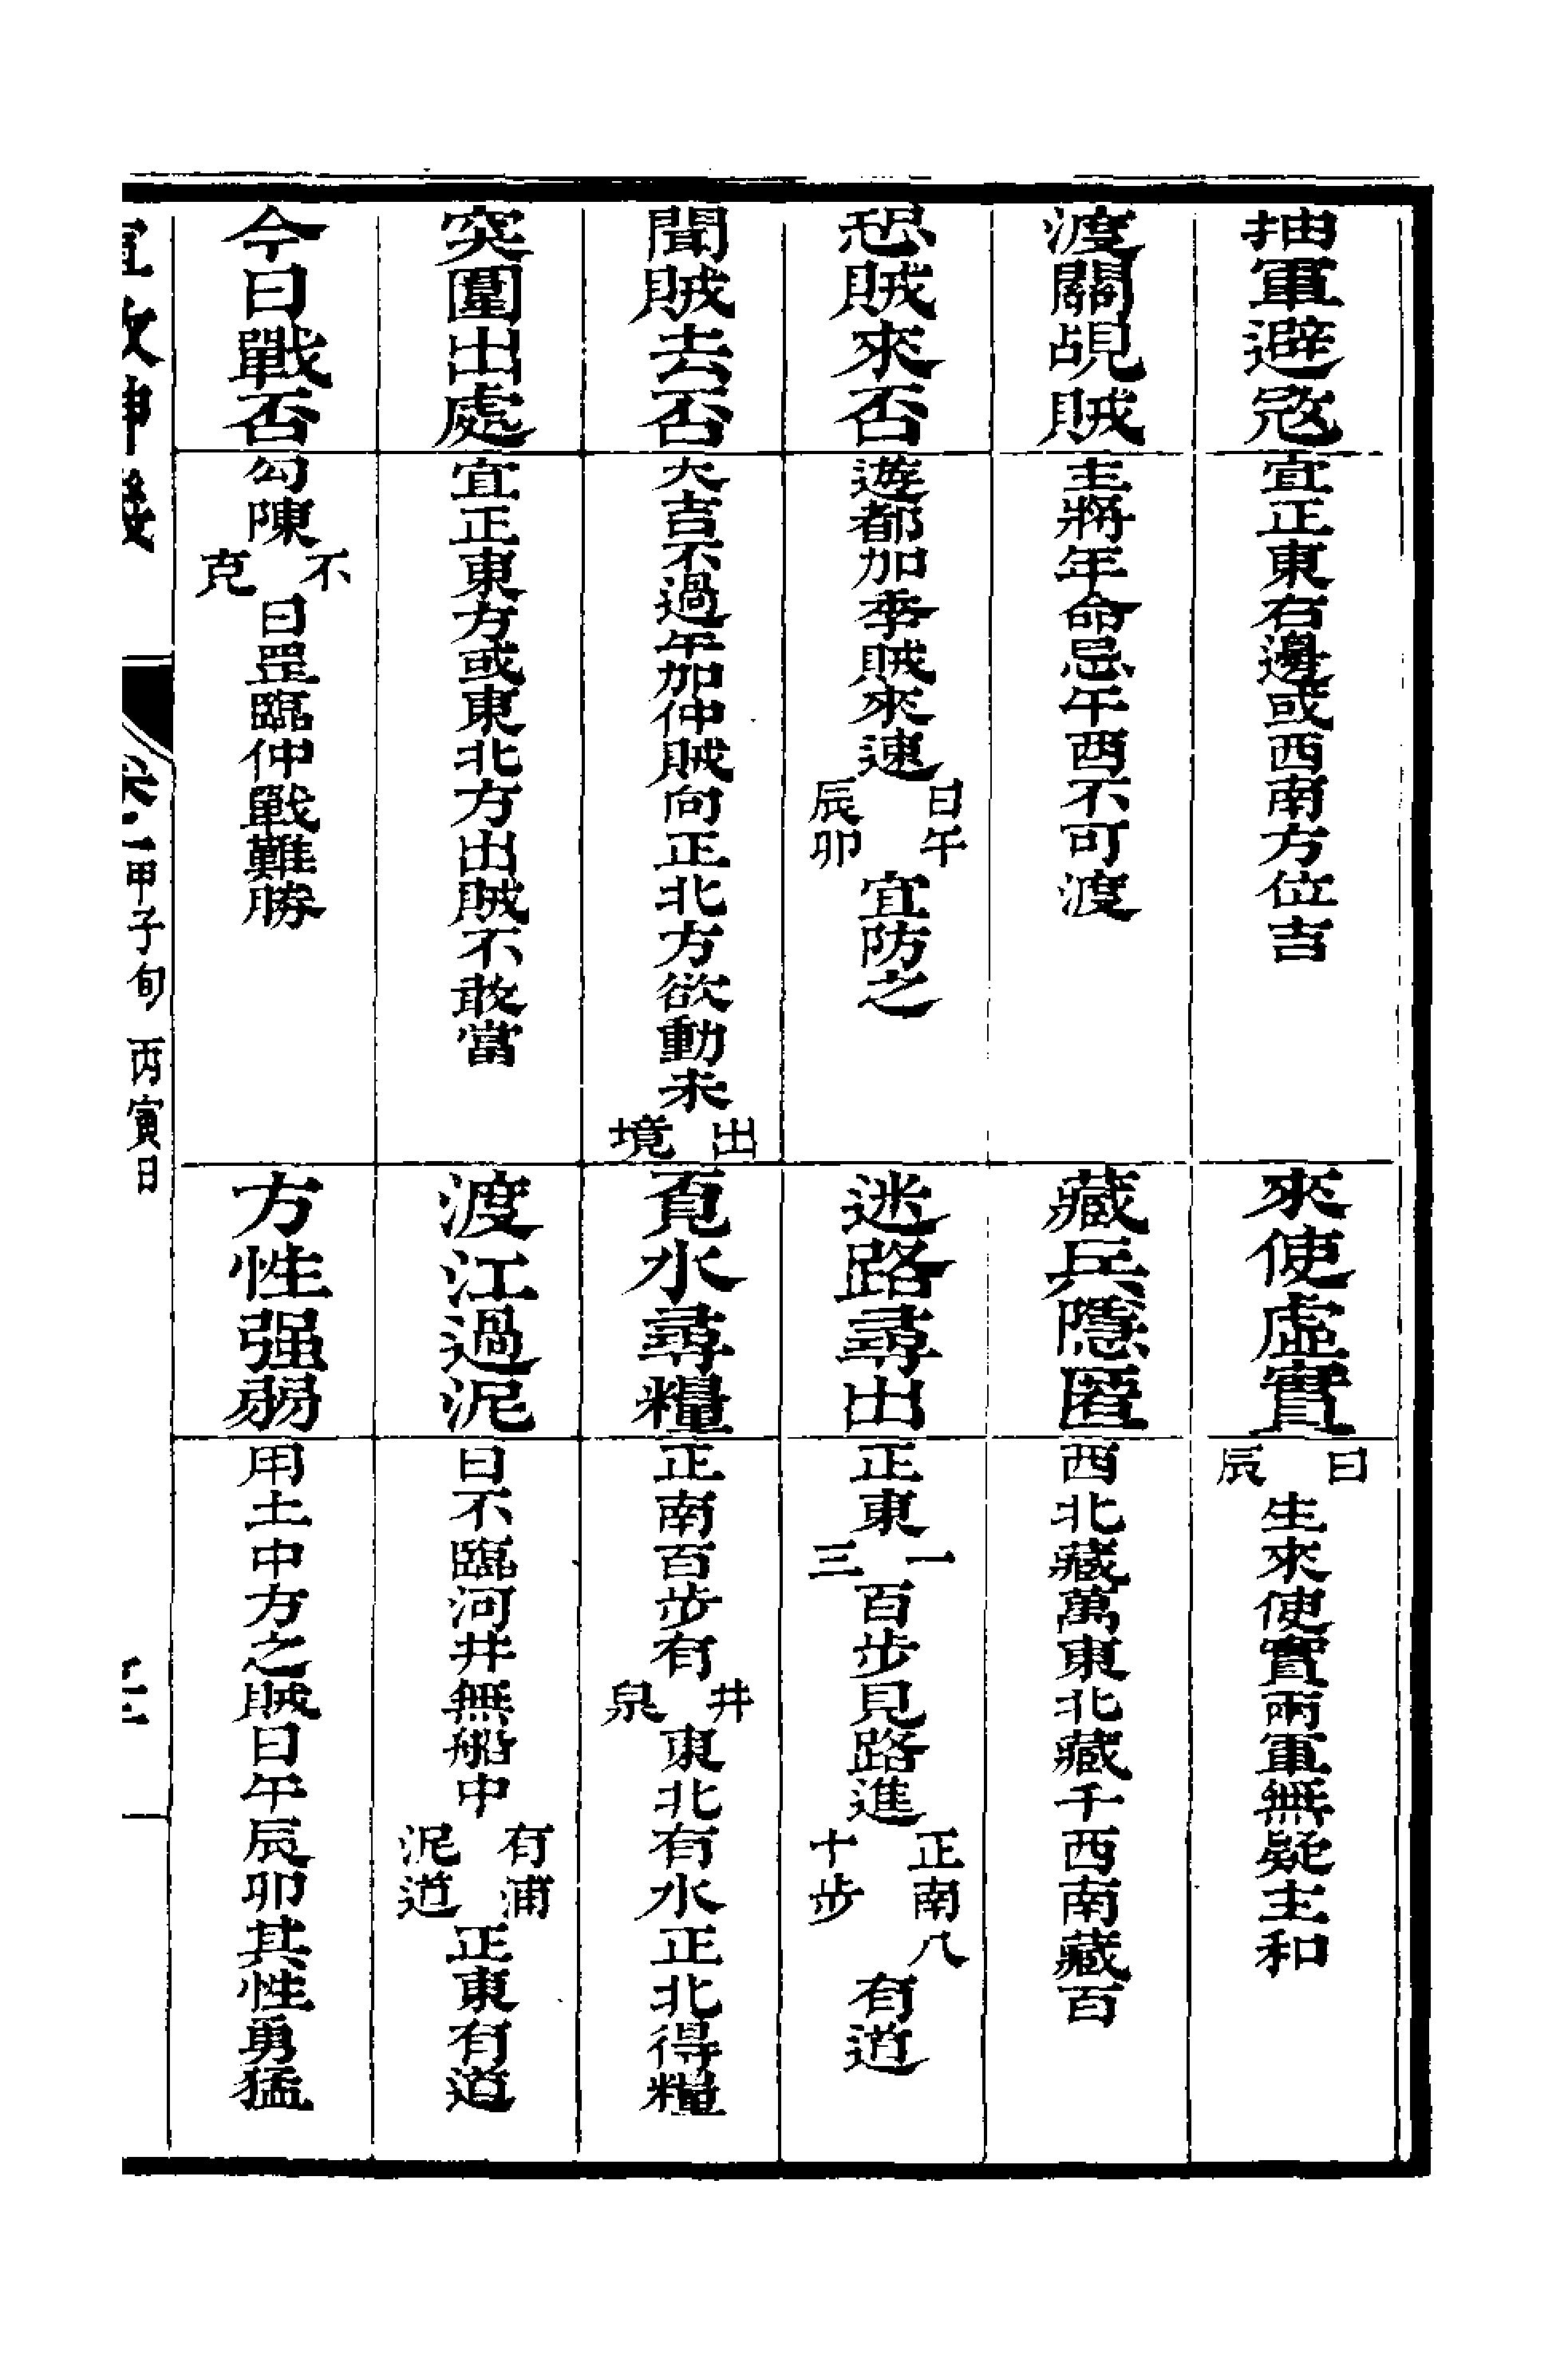 抽軍避寇 宜正東右邊或西南方位吉 來使虛實 日辰生來使實兩軍無疑主和
渡關覘賊 主將年命忌午酉不可渡 藏兵隱匿 西北藏萬東北藏千西南藏百
恐賊來否 遊都加季賊來速日午辰卯宜防之 迷路尋出 正東一三百步見路進正南八十步有道
聞賊去否 大吉不過午加仲賊向正北方欲動未出境 覔水尋糧 正南百步有井泉東北有水正北得糧
突圍出處 宜正東方或東北方出賊不敢當 渡江過泥 日不臨河井無船中有浦泥道正東有道
今日戰否 勾陳不克日罡臨仲戰難勝 方性强弱 用土中方之賊日午辰卯其性勇猛
神機 卷一 甲子旬 丙寅日